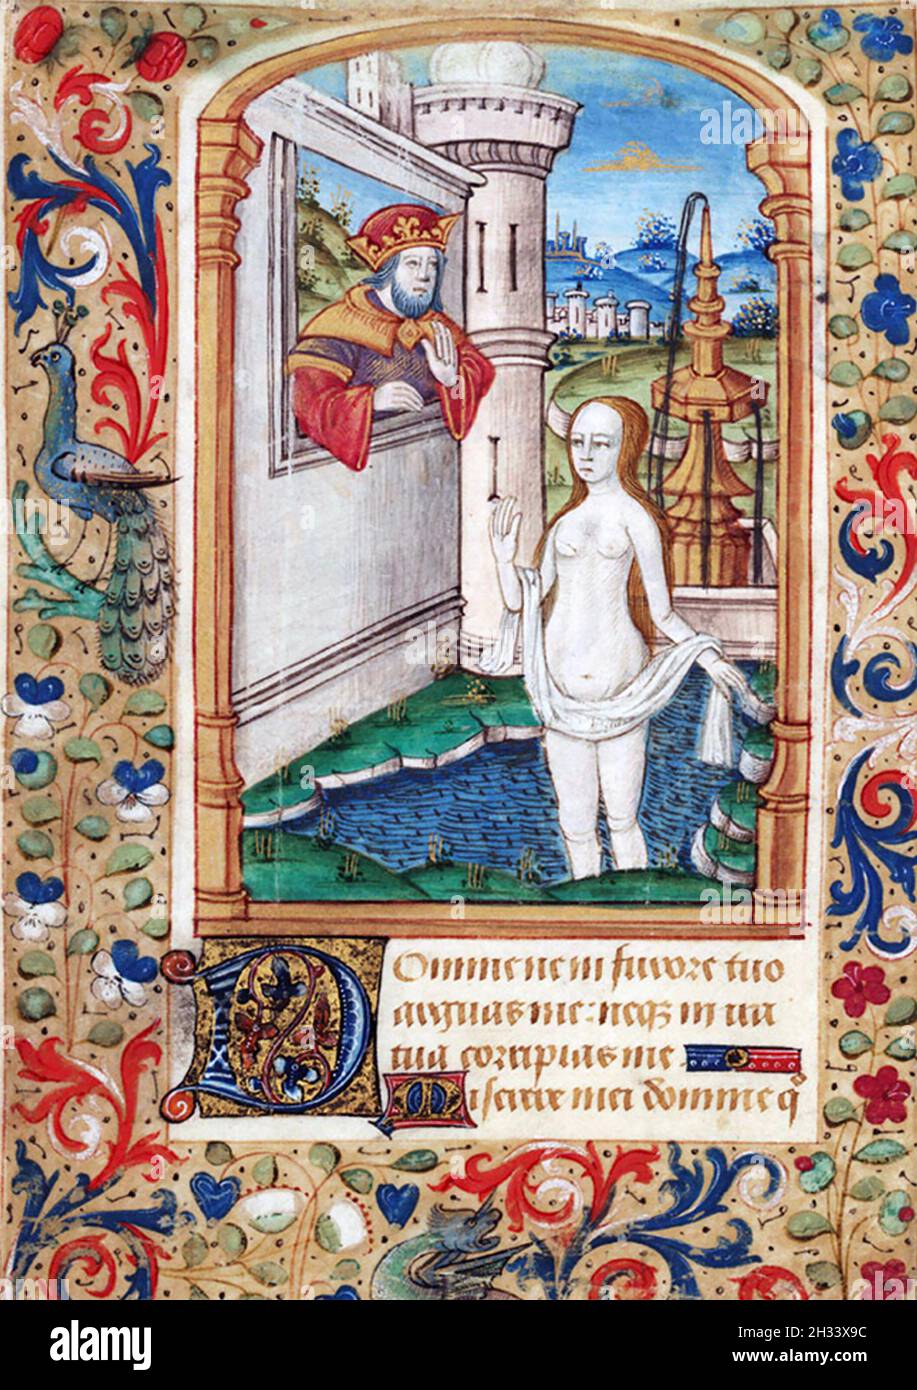 Domine ne in furore tuo
arguas me: neqz in ira
tua corripias me
Miserere mei domine q
alamy
Image ID: 2H33X9C
www.alamy.com